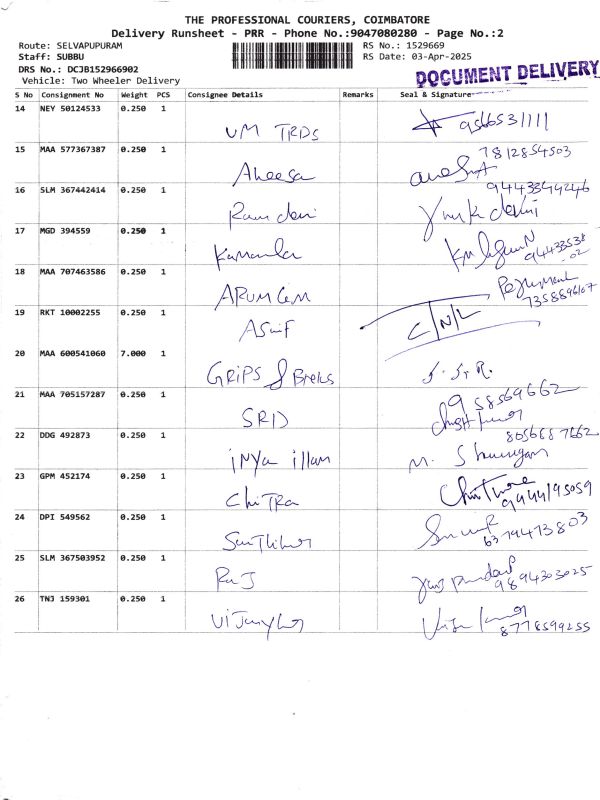 THE PROFESSIONAL COURIERS, COIMBATORE
Delivery Runsheet - PRR - Phone No.:9047080280 - Page No.:2
Route: SELVAPUPURAM
RS No.: 1529669
Staff: SUBBU
RS Date: 03-Apr-2025
DRS No.: DCJB152966902
Vehicle: Two Wheeler Delivery
DOCUMENT DELIVERY
S No Consignment No Weight PCS Consignee Details Remarks Seal & Signature
14 NEY 50124533 0.250 1
UM TRDS 9566531111
15 MAA 577367387 0.250 1
7812854503
Aheesa
16 SLM 367442414 0.250 1
9443344246
Ram devi
17 MGD 394559 0.250 1
Kamanla
18 MAA 707463586 0.250 1
7358896107
ARUM Gem
19 RKT 10002255 0.250 1
ASIIF C/N/L
20 MAA 600541060 7.000 1
GRIPS & Breks
21 MAA 705157287 0.250 1
958569662
SRID
22 DDG 492873 0.250 1
8056687662
iNYa illam M. Shanmugam
23 GPM 452174 0.250 1
ChiTRa
9944195059
24 DPI 549562 0.250 1
6379473803
25 SLM 367503952 0.250 1
RaJ
9894303025
26 TNJ 159301 0.250 1
8778599255